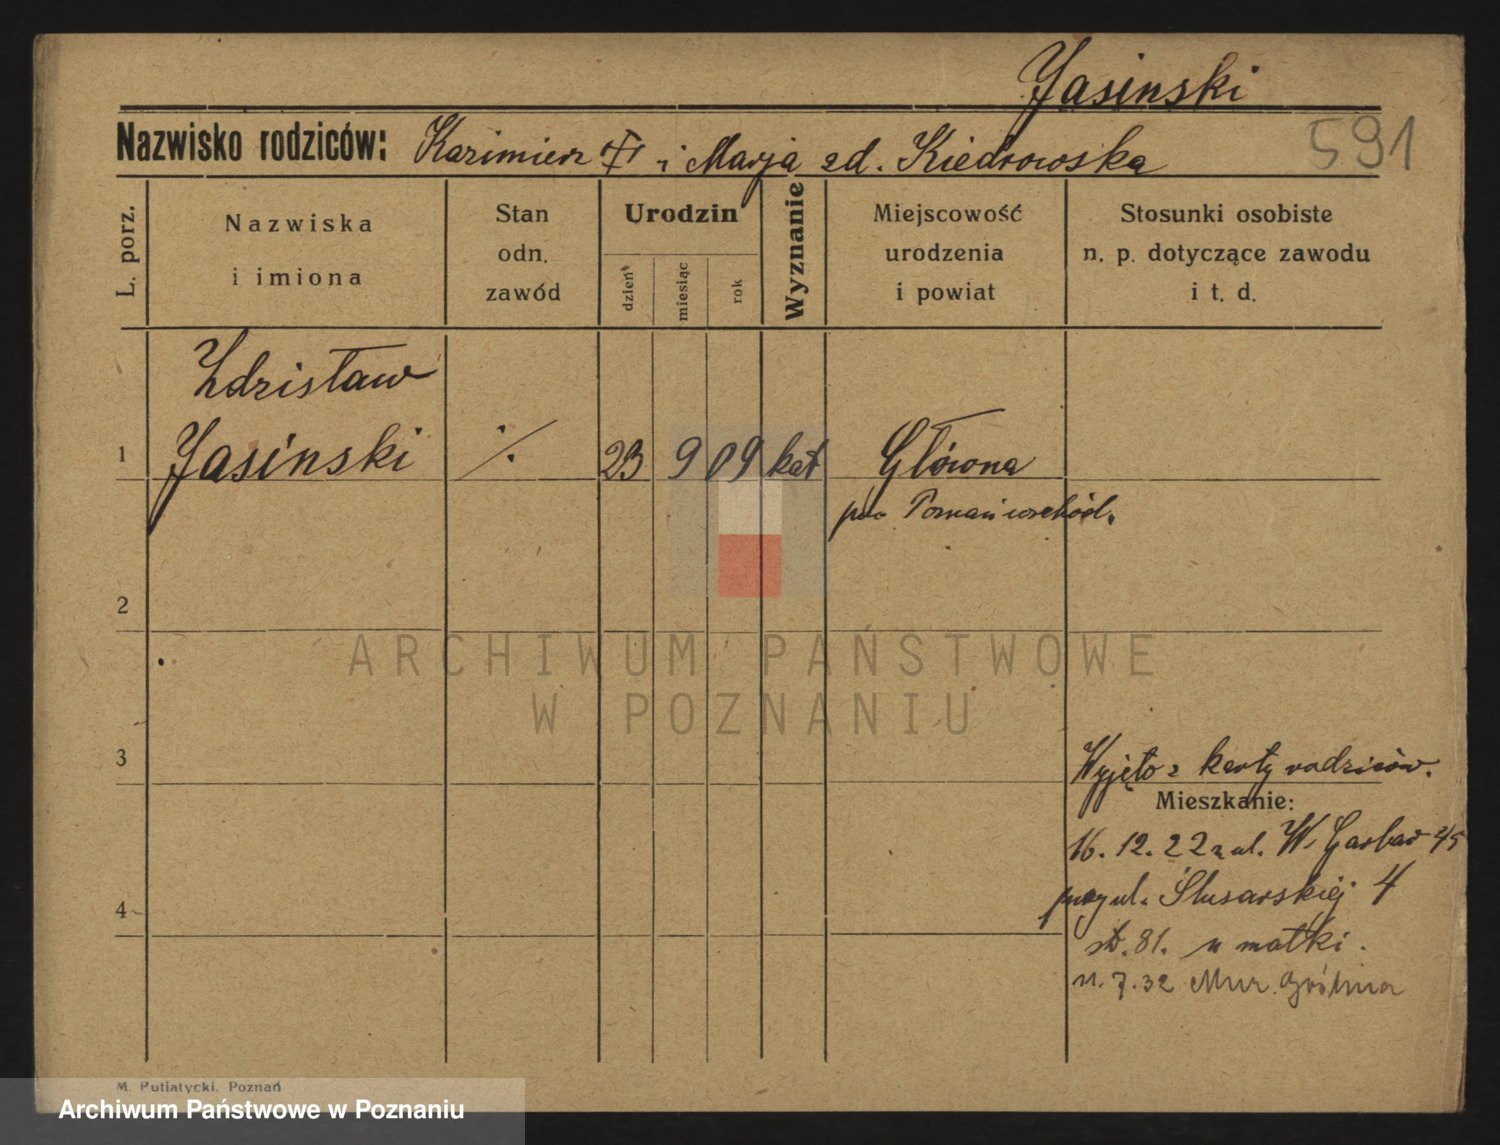 Jasinski
Nazwisko rodziców: Kazimierz i Marja zd. Kiedrowska
591
L. porz.
Nazwiska
i imiona
Stan
odn.
zawód
Urodzin
dzień
miesiąc
rok
Wyznanie
Miejscowość
urodzenia
i powiat
Stosunki osobiste
n. p. dotyczące zawodu
i t. d.
Zdzisław
1 Jasinski ·/. 23 9 09 kat Główna
pow Poznań wschód.
2
ARCHIWUM PAŃSTWOWE
W POZNANIU
3
Wyjęto z karty rodziców.
Mieszkanie:
16. 12. 22 z ul. W. Garbar 45
przy ul. Ślusarskiej 4
4
81. u matki.
7.32 Mur. Goślina
M. Putiatycki, Poznań
Archiwum Państwowe w Poznaniu